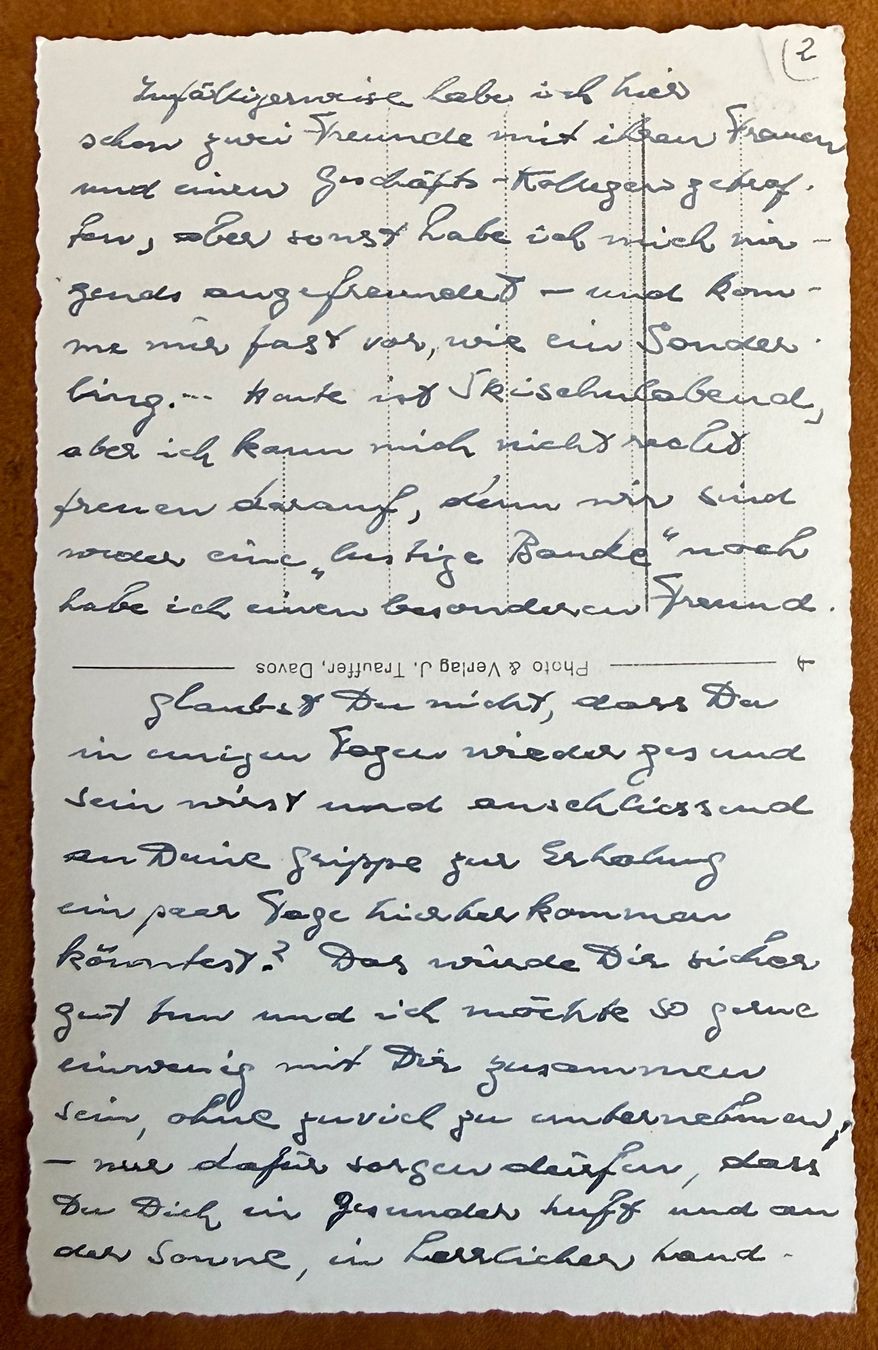 2
Zufälligerweise habe ich hier
schon zwei Freunde mit ihren Frauen
und einen Geschäfts-Kollegen getrof-
fen, aber sonst habe ich mich nir-
gends angefreundet – und kom-
me mir fast vor, wie ein Sonder-
ling. -- Heute ist Skischulabend,
aber ich kann mich nicht recht
freuen darauf, denn wir sind
weder eine „lustige Bande“ noch
habe ich einen besonderen Freund.
Photo & Verlag J. Trauffer, Davos
Glaubst Du nicht, dass Du
in einigen Tagen wieder gesund
sein wirst und anschliessend
an Deine Grippe zur Erholung
ein paar Tage hierher kommen
könntest? Das würde Dir sicher
gut tun und ich möchte so gerne
einwenig mit Dir zusammen
sein, ohne zuviel zu unternehmen,
– nur dafür sorgen dürfen, dass
Du Dich in gesunder Luft und an
der Sonne, in herrlicher Land-